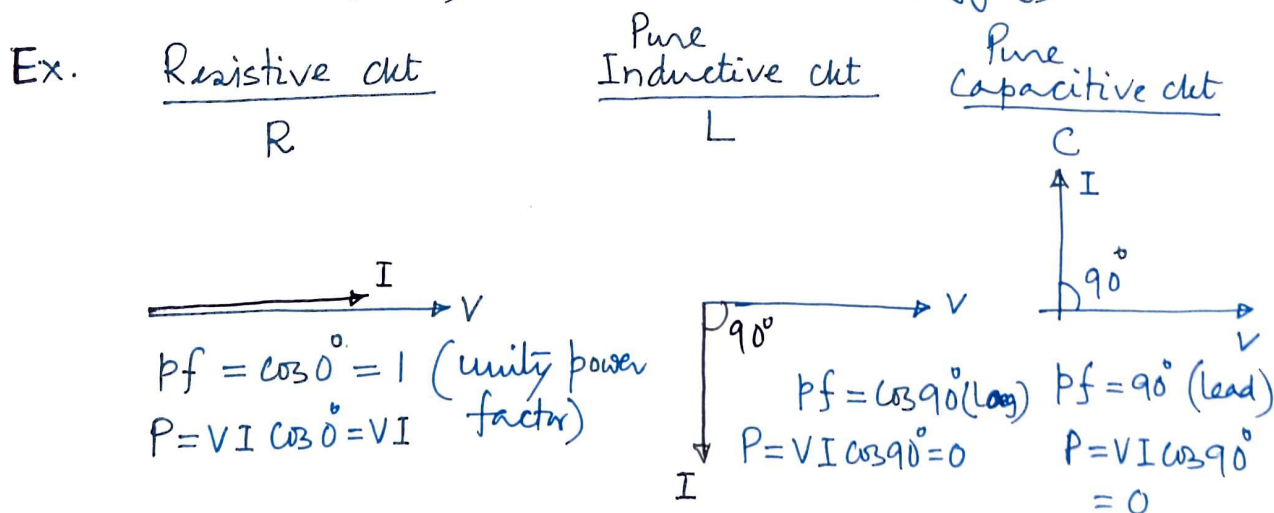 Ex.
Resistive ckt
R
I
V
pf = cos 0° = 1 (unity power factor)
P = VI cos 0° = VI
Pure
Inductive ckt
L
90°
V
I
pf = cos 90° (Lag)
P = VI cos 90° = 0
Pure
Capacitive ckt
C
I
90°
V
pf = 90° (lead)
P = VI cos 90°
= 0